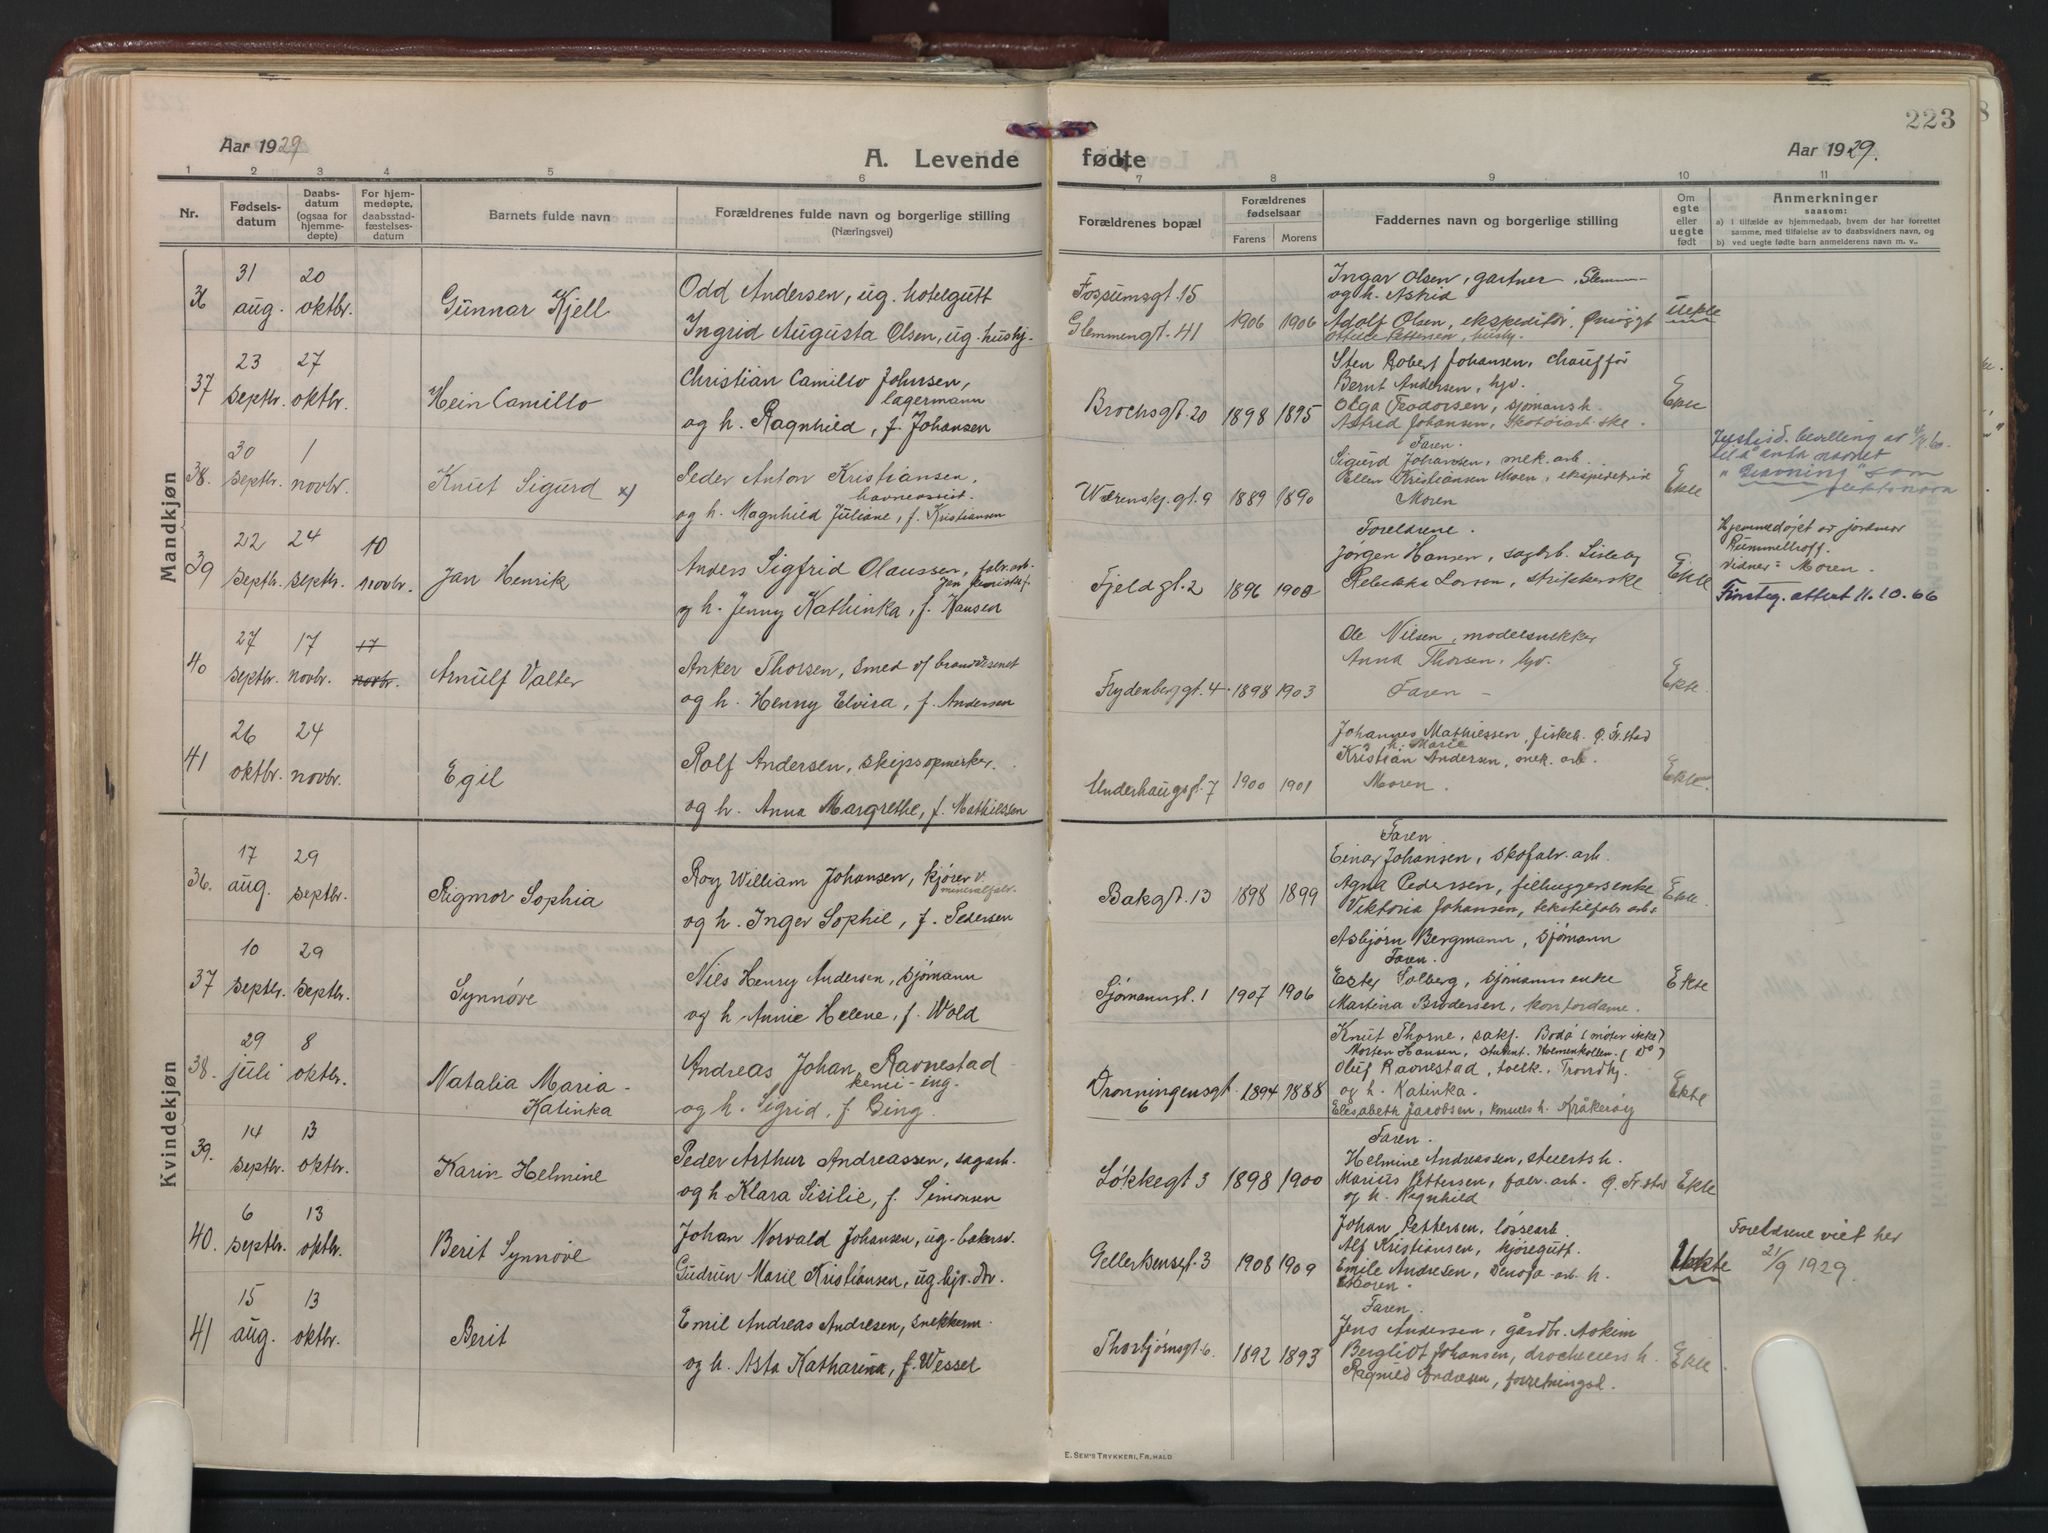 223
Aar 1929
A. Levende
fødte
Aar 1929.
1 2 3 4 5 6 7 8 9 10 11
Nr.
Fødsels-
datum
Daabs-
datum
(ogsaa for
hjemme-
døpte)
For hjem-
medøpte,
daabsstad-
fæstelses-
datum
Barnets fulde navn
Forældrenes fulde navn og borgerlige stilling
(Næringsvei)
Forældrenes bopæl
Forældrenes
fødselsaar
Farens
Morens
Faddernes navn og borgerlige stilling
Om
egte
eller
uegte
født
Anmerkninger
saasom:
a) I tilfælde av hjemmedaab, hvem der har forrettet
samme, med tilføielse av to daabsvidners navn, og
b) ved uegte fødte barn anmelderens navn m. v..
Mandkjøn
36
31 aug.
20 oktbr.
Gunnar Kjell
Odd Andersen, ug. hotelgutt
Ingrid Augusta Olsen, ug. hushj.
Fossumsgt. 15
Glemmengt. 41
1906 1906
Ingar Olsen, gartner, Glemm-
og h. Astrid
Adolf Olsen, ekspeditør,
Pettersen, hushj.
Uekte
37
23 septbr.
27 oktbr.
Hein Camillo
Christian Camillo Johnsen,
lagermann
og h. Ragnhild, f. Johansen
Brochsgt. 20
1898 1895
Sten Robert Johansen, chauffør
Bernt Andersen, hjv.
Olga Teodorsen, sjømansh.
Astrid Johansen, Skotøiarb.ske.
Faren.
Ekte
38.
30 septbr.
1 novbr.
Knut Sigurd x)
Peder Anton Kristiansen,
havneassist.
og h. Magnhild Juliane, f. Kristiansen
Wærenskj.gt. 9
1889 1890
Sigurd Johansen, mek. arb.
Ellen Kristiansen Moen, ekspeditrise
Moren
Ekte
Justisd. bevilling av 4/8 60
til å anta navnet
som
slektsnavn
39
22 septbr.
24 septbr.
10 novbr.
Jan Henrik
Anders Sigfrid Olaussen, fabr.arb.
og h. Jenny Kathinka, f. Hansen
Fjeldgt. 2
1896 1900
Foreldrene.
Jørgen Hansen, sagarb. Lisleby
Rebekka Larsen, strikkerske
Ekte
Hjemmedøpt av jordmor
Rummelhoff.
Vidner = Moren.
Finsteg. attest 11.10.66
40
27 septbr.
17 novbr.
17 novbr.
Arnulf Valter
Anker Thorsen, smed v/ brandvesenet
og h. Henny Elvira, f. Andersen
Frydenberggt. 4
1898 1903
Ole Nilsen, modelsnekker
Anna Thorsen, hjv.
Faren -
Ekte.
41
26 oktbr.
24 novbr.
Egil
Rolf Andersen, skipsopmerker.
og h. Anna Margrethe, f. Mathiessen
Underhaugsgt. 7
1900 1901
Johannes Mathiessen, fiskeh. G. Fr.stad
og h. Marie
Kristian Andersen, mek. arb.
Moren.
Ekte
Kvindekjøn
36.
17 aug.
29 septbr.
Rigmor Sophia
Roy William Johansen, kjører v.
mineralfabr.
og h. Inger Sophie, f. Pedersen
Bakgt. 13
1898 1899
Faren
Einar Johansen, skofabr. arb.
Agna Pedersen, filhuggersenke
Viktoria Johansen, tekstilfabr. arb.
Ekte.
37
10 septbr.
29 septbr.
Synnøve
Nils Henry Andersen, sjømann
og h Annie Helene, f. Wold
Sjømannsgt. 1
1907 1906
Asbjørn Bergmann, sjømann
Faren.
Ester Solberg, sjømannsenke
Martina Brodersen, kontordame.
Ekte
38.
29 juli
8 oktbr.
Natalia Maria
Katinka
Andreas Johan Ravnestad
kemi-eng.
og h. Sigrid, f Bing.
Dronningensgt.
6
1894 1888
Knut Thorne, sakf. Bodø (møter ikke)
Morten Hansen, student. Holmenkollen. (do)
Oluf Ravnestad, tolk., Trondhj.
og h. Katinka.
Elisabeth Jacobsen, konsuls h. Kråkerøy
Ekte
39.
14 septbr.
13 oktbr.
Karin Helmine
Peder Arthur Andreassen, sagarb.
og h Klara Sisilie, f. Simonsen
Løkkegt 3
1898 1900
Faren.
Helmine Andreassen, stuerts h.
Marius Pettersen, fabr. arb. G. Fr. stad
og h. Ragnhild
Ekte
40.
6 septbr.
13 oktbr.
Berit Synnøve
Johan Norvald Johansen, ug. bakersv.
Gudrun Marie Kristiansen, ug hjv. dtr.
Gellerbensgt. 3
1908 1909
Johan Pettersen, løssearb
Alf Kristiansen, kjøregutt.
Emilie Andresen, Denofa-arb. h.
Moren.
Uekte
Foreldrene viet her
21/9 1929.
41
15 aug.
13 oktbr.
Berit
Emil Andreas Andresen, snekkerm.
og h. Asta Katharina, f. Wessel
Thorbjørnsgt. 6.
1892 1893
Faren.
Jens Andersen, gårdbr. Askim
Bergliot Johansen, h.
Ragnhild Andresen, forretningsd.
Ekte.
E. SEM'S TRYKKERI, FR. HALD